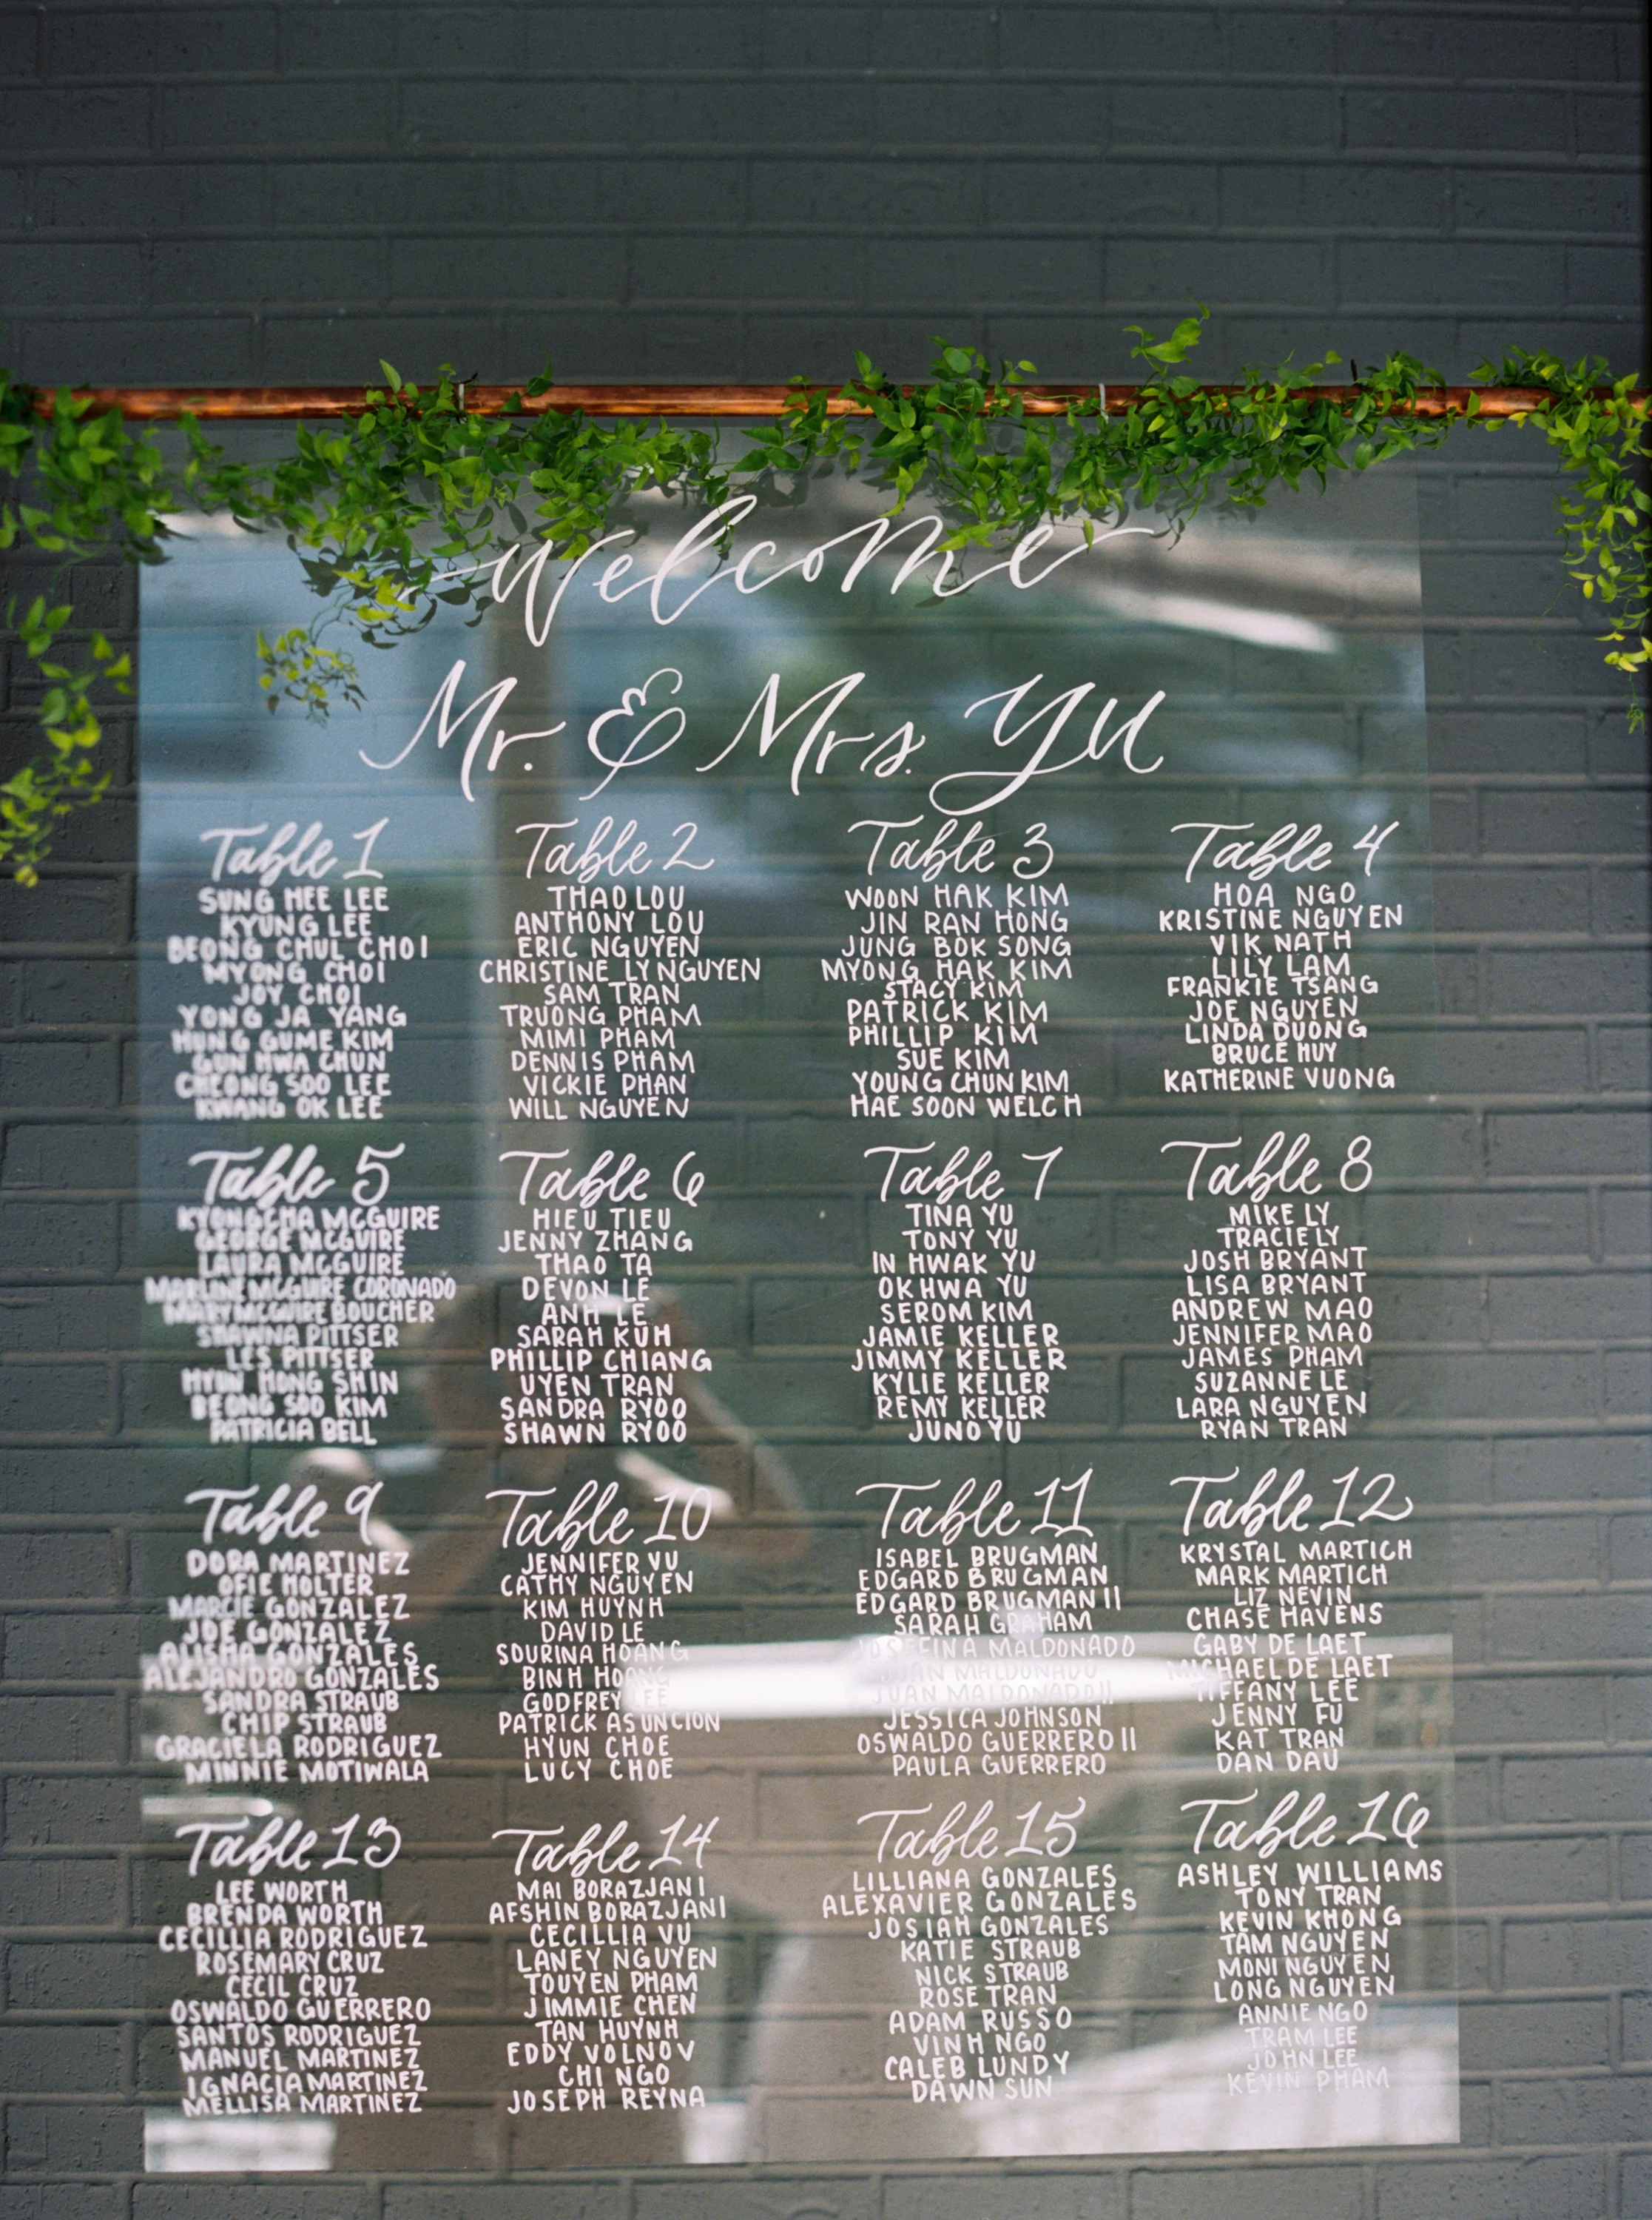 Welcome
Mr. & Mrs. Yu
Table 1
SUNG HEE LEE
KYUNG LEE
BEONG CHUL CHOI
MYONG CHOI
JOY CHOI
YONG JA YANG
HUNG GUME KIM
GUN HWA CHUN
CHEONG SOO LEE
KWANG OK LEE
Table 2
THAO LOU
ANTHONY LOU
ERIC NGUYEN
CHRISTINE LY NGUYEN
SAM TRAN
TRUONG PHAM
MIMI PHAM
DENNIS PHAM
VICKIE PHAN
WILL NGUYEN
Table 3
WOON HAK KIM
JIN RAN HONG
JUNG BOK SONG
MYONG HAK KIM
STACY KIM
PATRICK KIM
PHILLIP KIM
SUE KIM
YOUNG CHUN KIM
HAE SOON WELCH
Table 4
HOA NGO
KRISTINE NGUYEN
VIK NATH
LILY LAM
FRANKIE TSANG
JOE NGUYEN
LINDA DUONG
BRUCE HUY
KATHERINE VUONG
Table 5
KYONGCHA MCGUIRE
GEORGE MCGUIRE
LAURA MCGUIRE
MARLINE MCGUIRE CORONADO
MARY MCGUIRE BOUCHER
SHAWNA PITTSER
LES PITTSER
HYUN HONG SHIN
BEONG SOO KIM
PATRICIA BELL
Table 6
HIEU TIEU
JENNY ZHANG
THAO TA
DEVON LE
ANH LE
SARAH KUH
PHILLIP CHIANG
UYEN TRAN
SANDRA RYOO
SHAWN RYOO
Table 7
TINA YU
TONY YU
IN HWAK YU
OK HWA YU
SEROM KIM
JAMIE KELLER
JIMMY KELLER
KYLIE KELLER
REMY KELLER
JUNO YU
Table 8
MIKE LY
TRACIE LY
JOSH BRYANT
LISA BRYANT
ANDREW MAO
JENNIFER MAO
JAMES PHAM
SUZANNE LE
LARA NGUYEN
RYAN TRAN
Table 9
DORA MARTINEZ
OFIE HOLTER
MARCIE GONZALEZ
JOE GONZALEZ
ALISHA GONZALES
ALEJANDRO GONZALES
SANDRA STRAUB
CHIP STRAUB
GRACIELA RODRIGUEZ
MINNIE MOTIWALA
Table 10
JENNIFER VU
CATHY NGUYEN
KIM HUYNH
DAVID LE
SOURINA HOANG
BINH HOANG
GODFREY LEE
PATRICK ASUNCION
HYUN CHOE
LUCY CHOE
Table 11
ISABEL BRUGMAN
EDGARD BRUGMAN
EDGARD BRUGMAN II
SARAH GRAHAM
JOSEFINA MALDONADO
JUAN MALDONADO
JUAN MALDONADO II
JESSICA JOHNSON
OSWALDO GUERRERO II
PAULA GUERRERO
Table 12
KRYSTAL MARTICH
MARK MARTICH
LIZ NEVIN
CHASE HAVENS
GABY DE LAET
MICHAEL DE LAET
TIFFANY LEE
JENNY FU
KAT TRAN
DAN DAU
Table 13
LEE WORTH
BRENDA WORTH
CECILLIA RODRIGUEZ
ROSEMARY CRUZ
CECIL CRUZ
OSWALDO GUERRERO
SANTOS RODRIGUEZ
MANUEL MARTINEZ
IGNACIA MARTINEZ
MELLISA MARTINEZ
Table 14
MAI BORAZJANI
AFSHIN BORAZJANI
CECILLIA VU
LANEY NGUYEN
TOUYEN PHAM
JIMMIE CHEN
TAN HUYNH
EDDY VOLNOV
CHI NGO
JOSEPH REYNA
Table 15
LILLIANA GONZALES
ALEXAVIER GONZALES
JOSIAH GONZALES
KATIE STRAUB
NICK STRAUB
ROSE TRAN
ADAM RUSSO
VINH NGO
CALEB LUNDY
DAWN SUN
Table 16
ASHLEY WILLIAMS
TONY TRAN
KEVIN KHONG
TAM NGUYEN
MONI NGUYEN
LONG NGUYEN
ANNIE NGO
TRAM LEE
JOHN LEE
KEVIN PHAM